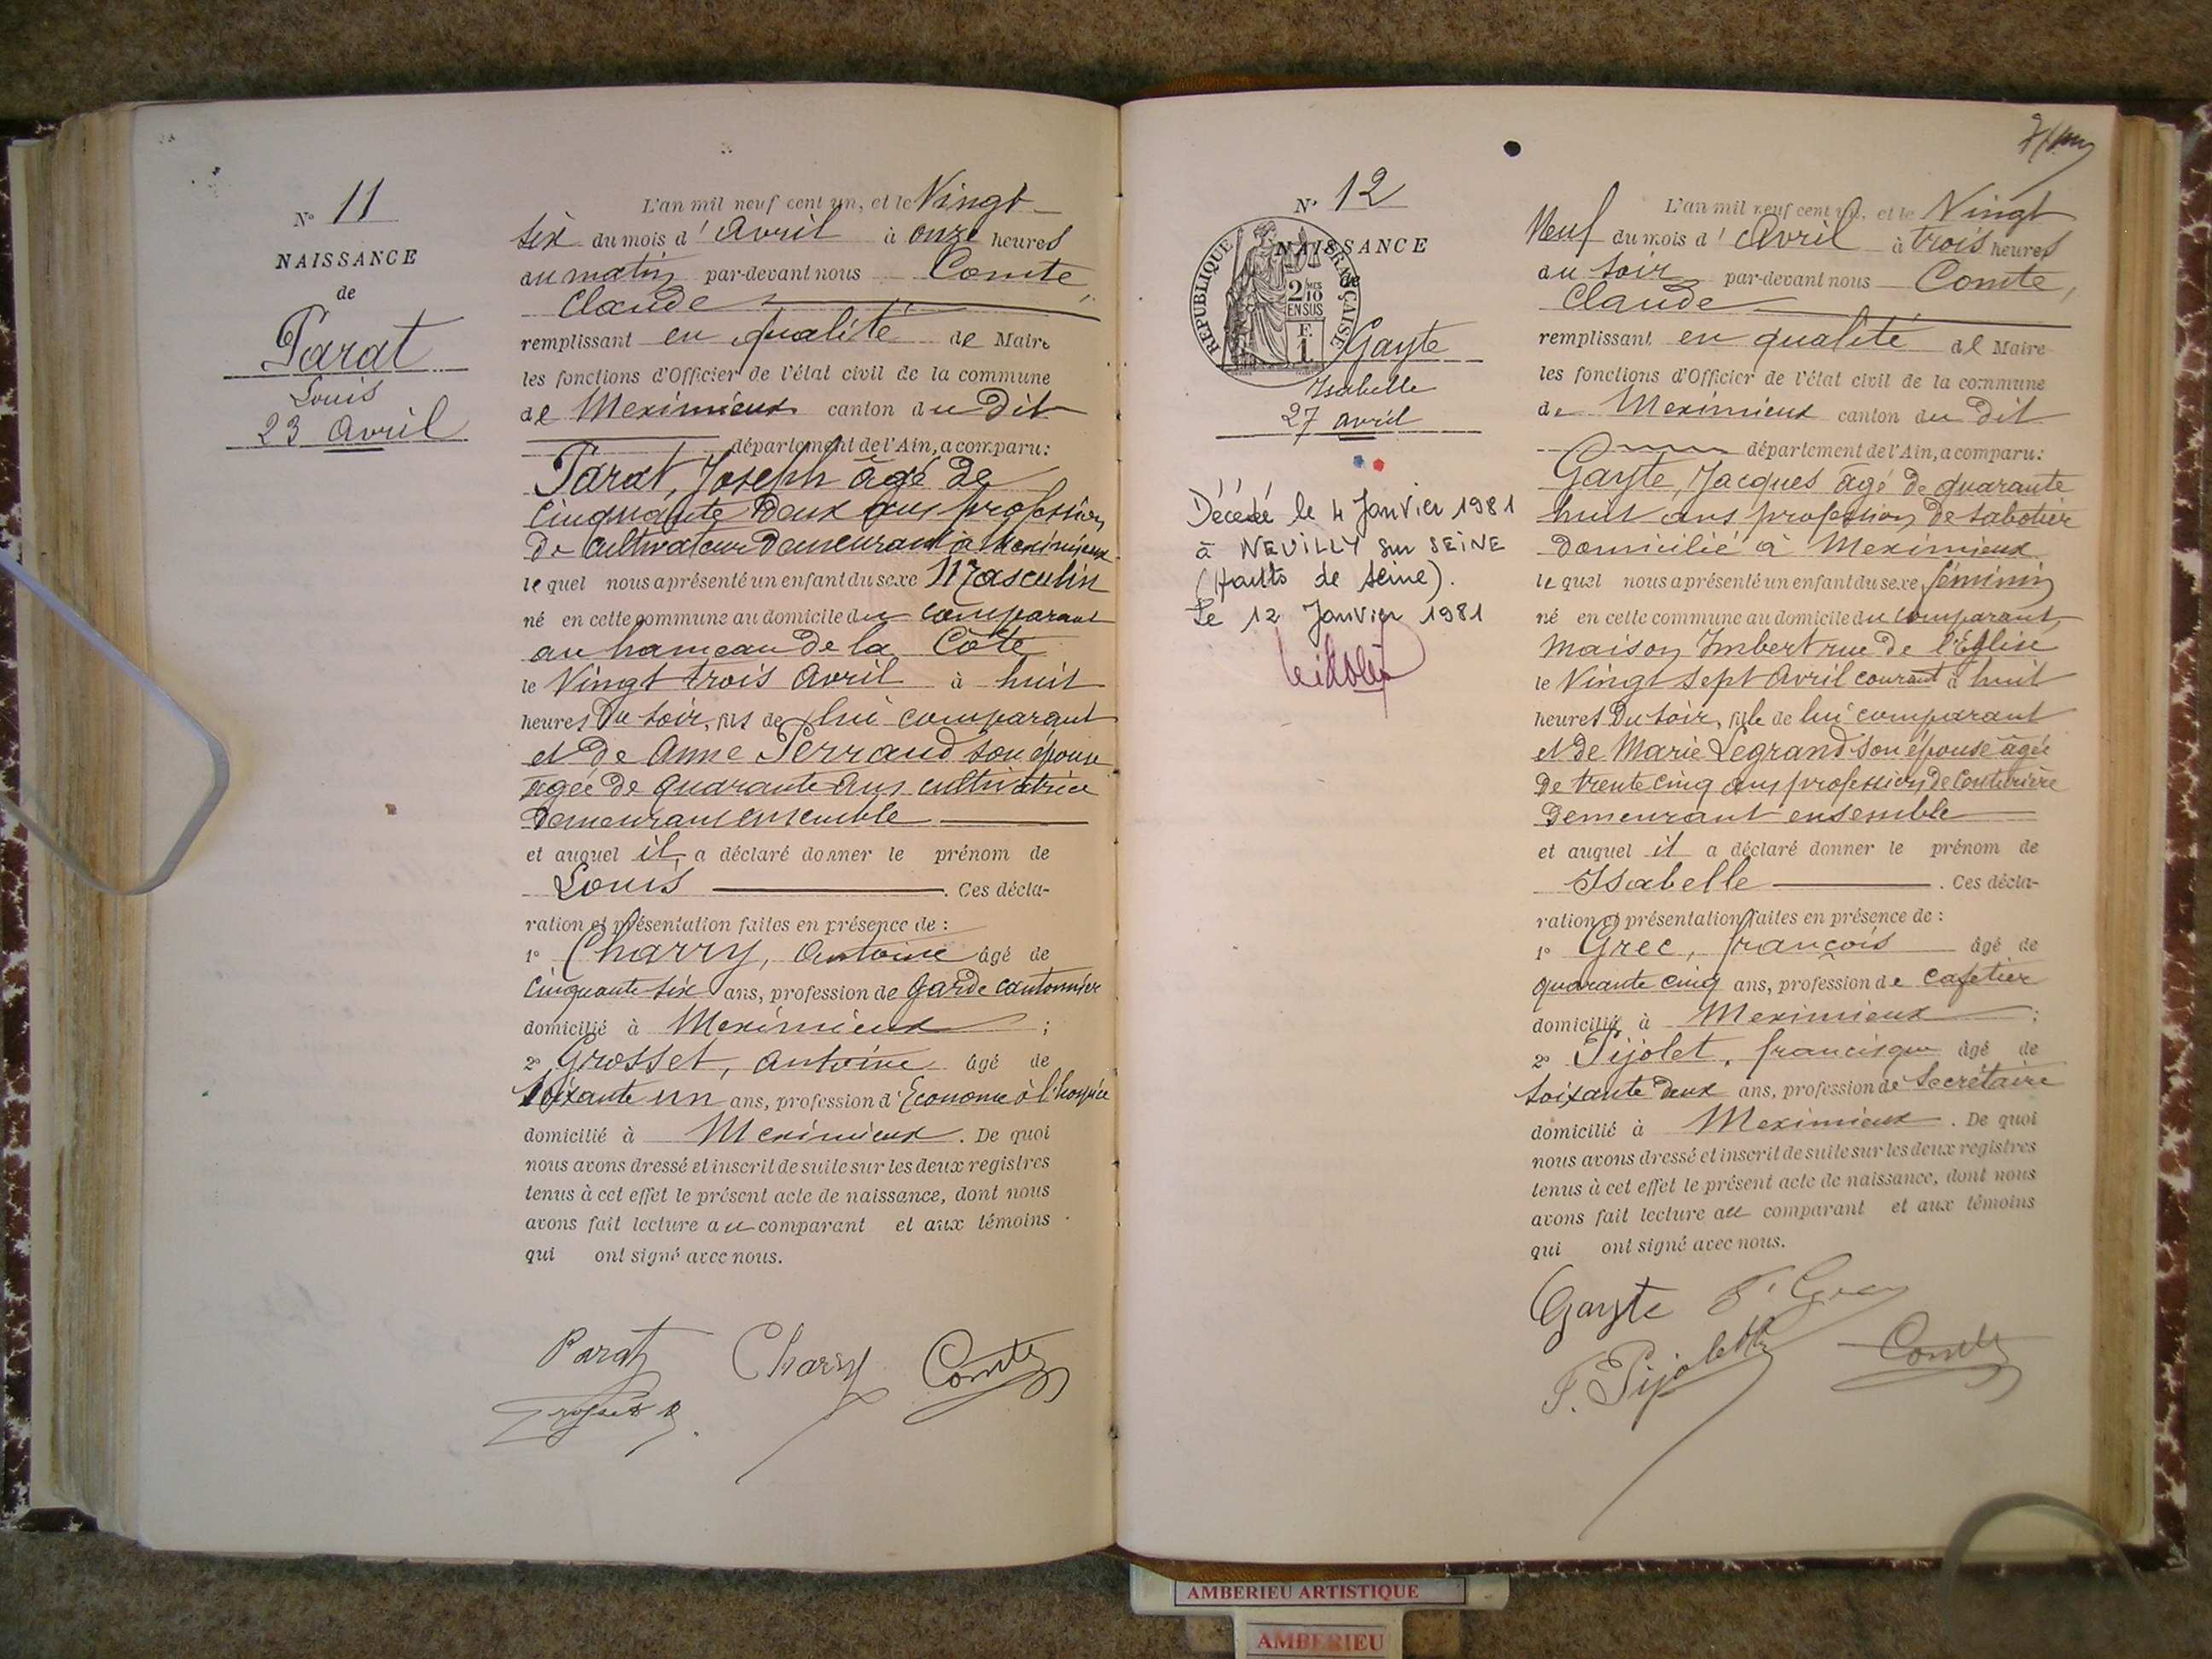 N° 11
NAISSANCE
de
Parat
Louis
23 Avril
L'an mil neuf cent un, et le Vingt
six du mois d'Avril à onze heures
au matin par-devant nous Comte,
Claude
remplissant en qualité de Maire
les fonctions d'Officier de l'état civil de la commune
de Meximieux canton du Dit
département de l'Ain, a comparu:
Parat, Joseph âgé de
Cinquante Deux ans profession
De Cultivateur Demeurant à Meximieux
le quel nous a présenté un enfant du sexe Masculin
né en cette commune au domicile du comparant
au hameau De la Côte
le Vingt trois Avril à huit
heures Du soir, fils de lui comparant
et De Anne Perraud son épouse
âgée De quarante ans cultivatrice
Demeurant ensemble
et auquel il a déclaré donner le prénom de
Louis. Ces décla-
ration et présentation faites en présence de :
1° Charry, Antoine âgé de
Cinquante six ans, profession de Garde cantonnier
domicilié à Meximieux ;
2° Grosset, Antoine âgé de
Soixante un ans, profession d'Econome à l'hospice
domicilié à Meximieux. De quoi
nous avons dressé et inscrit de suite sur les deux registres
tenus à cet effet le présent acte de naissance, dont nous
avons fait lecture au comparant et aux témoins
qui ont signé avec nous.
Parat Charry Comte
Grosset
N° 12
NAISSANCE
de
REPUBLIQUE FRANÇAISE
2/10 MES
EN SUS
F.
1
Gayte
Isabelle
27 avril
Décédé le 4 Janvier 1981
à NEUILLY sur SEINE
(Hauts de Seine).
Le 12 Janvier 1981
L'an mil neuf cent un, et le Vingt
Neuf du mois d'Avril à trois heures
au soir par-devant nous Comte,
Claude
remplissant en qualité de Maire
les fonctions d'Officier de l'état civil de la commune
de Meximieux canton du Dit
département de l'Ain, a comparu:
Gayte, Jacques âgé De quarante
huit ans profession De sabotier
Domicilié à Meximieux
le quel nous a présenté un enfant du sexe féminin
né en cette commune au domicile du comparant,
maison Imbert rue De l'Eglise
le Vingt sept Avril courant à huit
heures Du soir, fille de lui comparant
et De Marie Legrand son épouse âgée
De trente cinq ans profession De Couturière
Demeurant ensemble
et auquel il a déclaré donner le prénom de
Isabelle. Ces décla-
ration et présentation faites en présence de :
1° Grec, françois âgé de
quarante cinq ans, profession de cafetier
domicilié à Meximieux ;
2° Pijolet, francisque âgé de
soixante Deux ans, profession de Secrétaire
domicilié à Meximieux. De quoi
nous avons dressé et inscrit de suite sur les deux registres
tenus à cet effet le présent acte de naissance, dont nous
avons fait lecture au comparant et aux témoins
qui ont signé avec nous.
Gayte F. Grec
F. Pijolet Comte
AMBERIEU ARTISTIQUE
AMBERIEU